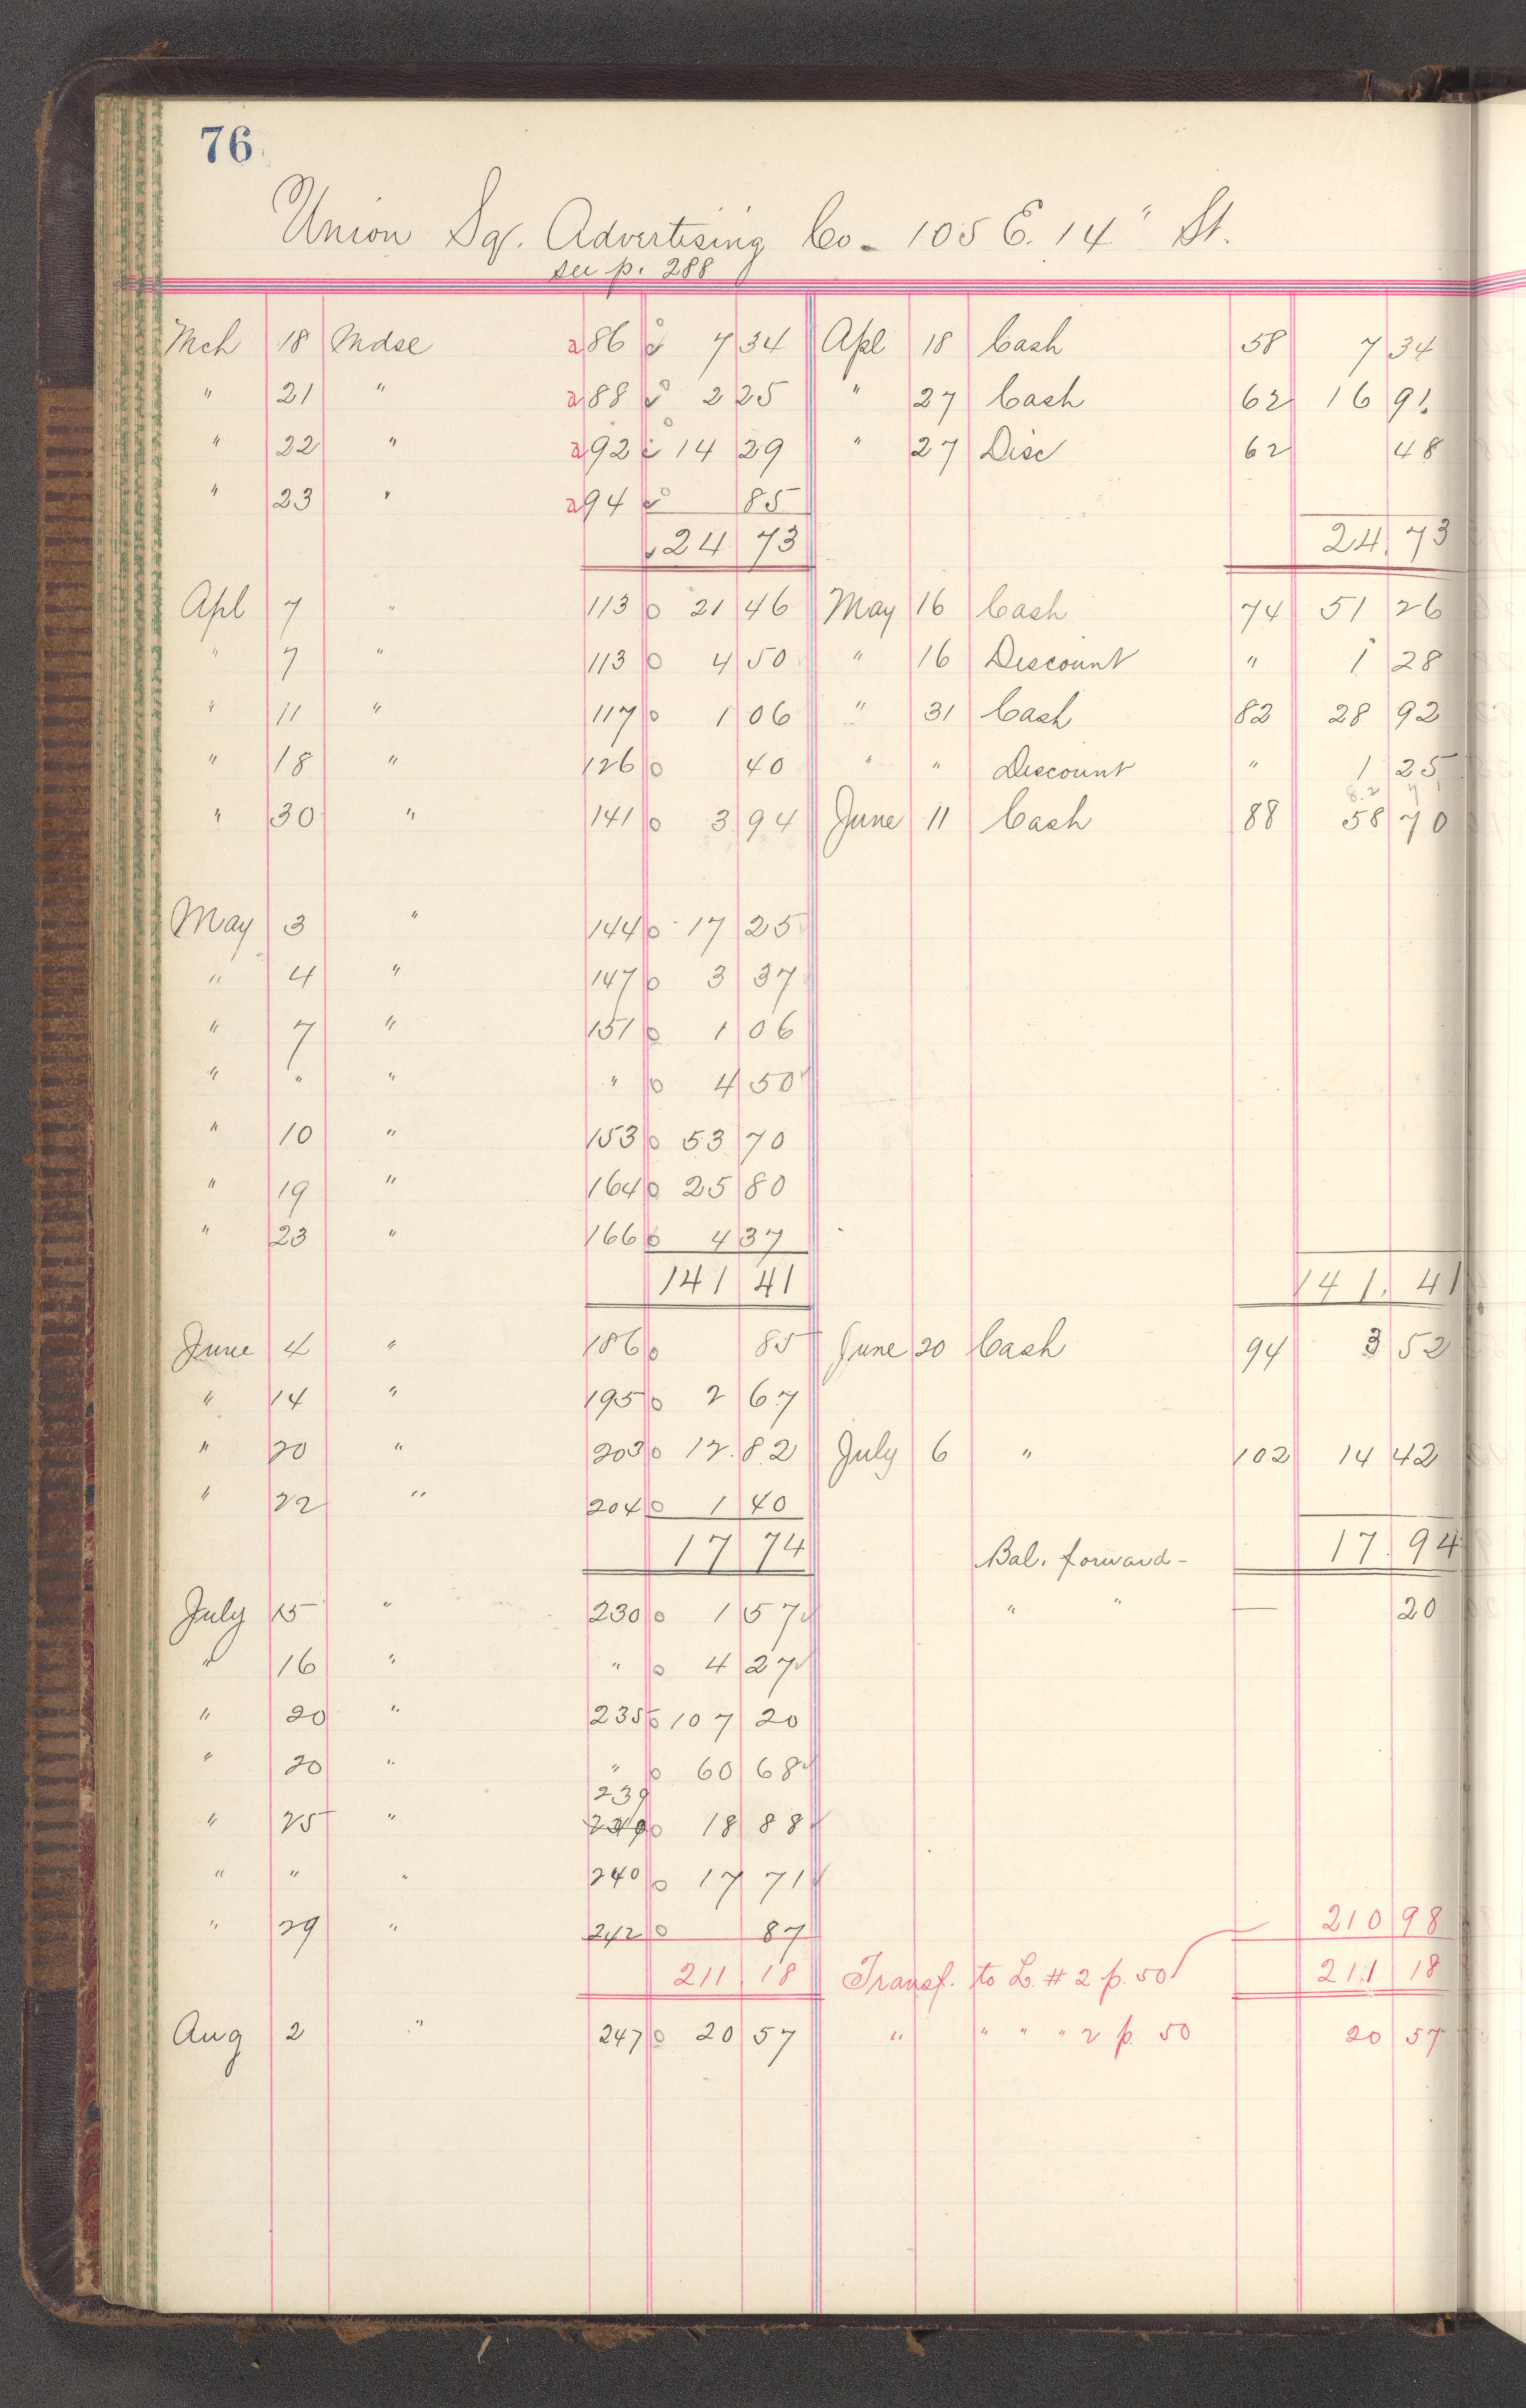 76
Union Sq. Advertising Co - 105 E. 14" St.
see p. 288
Mch 18 Mdse a86 7 34 Apl 18 Cash 58 7 34
" 21 " a88 2 25 " 27 Cash 62 16 91
" 22 " a92 14 29 " 27 Disc 62 48
" 23 " a94 85
24 73 24. 73
Apl 7 " 113 21 46 May 16 Cash 74 51 26
" 7 " 113 4 50 " 16 Discount " 1 28
" 11 " 117 1 06 " 31 Cash 82 28 92
" 18 " 126 40 " " Discount " 1 25
" 30 " 141 3 94 June 11 Cash 88 58 70
May 3 " 144 17 25
" 4 " 147 3 37
" 7 " 151 1 06
" " " " 4 50
" 10 " 153 53 70
" 19 " 164 25 80
" 23 " 166 4 37
141 41 141. 41
June 4 " 186 85 June 20 Cash 94 3 52
" 14 " 195 2 67
" 20 " 203 12. 82 July 6 " 102 14 42
" 22 " 204 1 40
17 74 Bal. forward - 17. 94
July 15 " 230 1 57 " " — 20
" 16 " " 4 27
" 20 " 235 107 20
" 20 " " 60 68
239
" 25 " 18 88
" " " 240 17 71
" 29 " 242 87 210 98
211 18 Transf. to L. # 2 p. 50 211 18
Aug 2 " 247 20 57 " " " " 2 p. 50 20 57